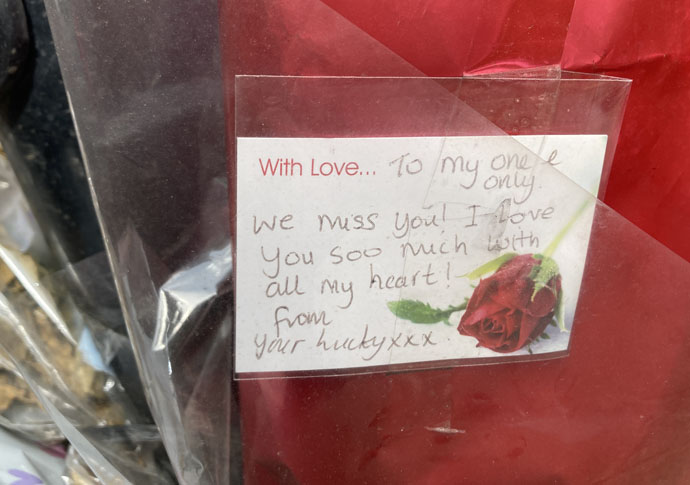 With Love... To my one &
only.
we miss you! I love
you soo much with
all my heart!
from
your huckyxxx.